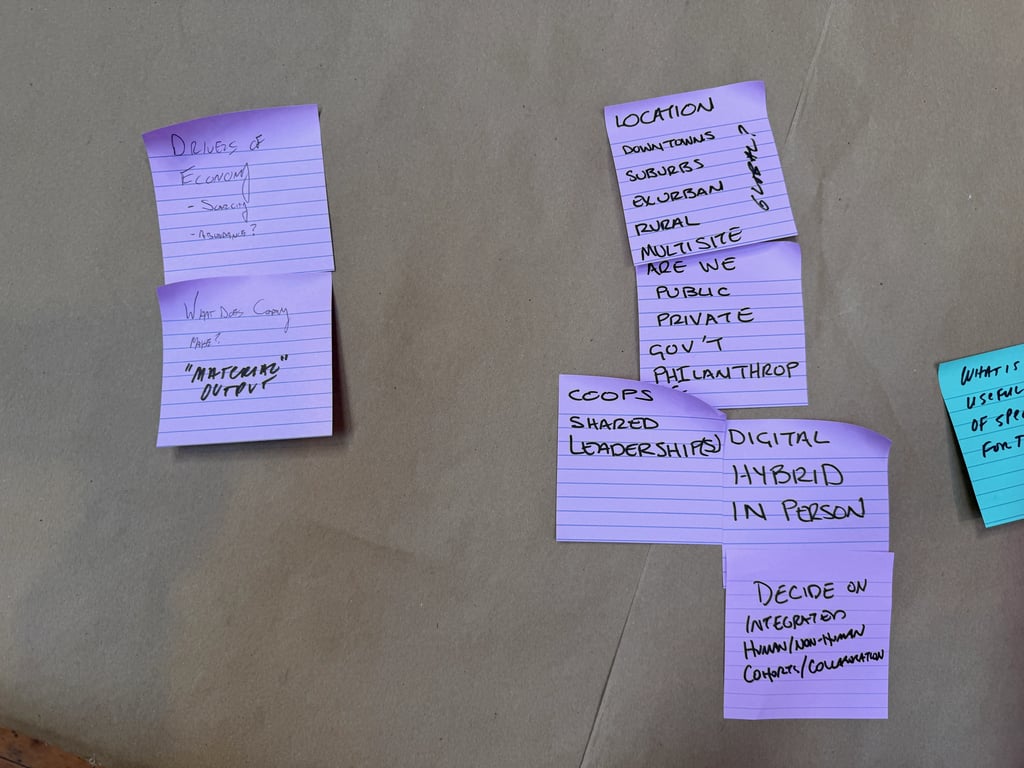 DRIVERS OF
ECONOMY
- SCARCITY
- ABUNDANCE?
WHAT DOES COMPANY
MAKE?
"MATERIAL"
OUTPUT
LOCATION
DOWNTOWNS
SUBURBS
EXURBAN
RURAL
MULTISITE
GLOBAL?
ARE WE
PUBLIC
PRIVATE
GOV'T
PHILANTHROP
COOPS
SHARED
LEADERSHIP(S)
DIGITAL
HYBRID
IN PERSON
DECIDE ON
INTEGRATED
HUMAN/NON-HUMAN
COHORTS/COLLABORATION
WHAT IS
USEFUL
OF SPE
FOR T